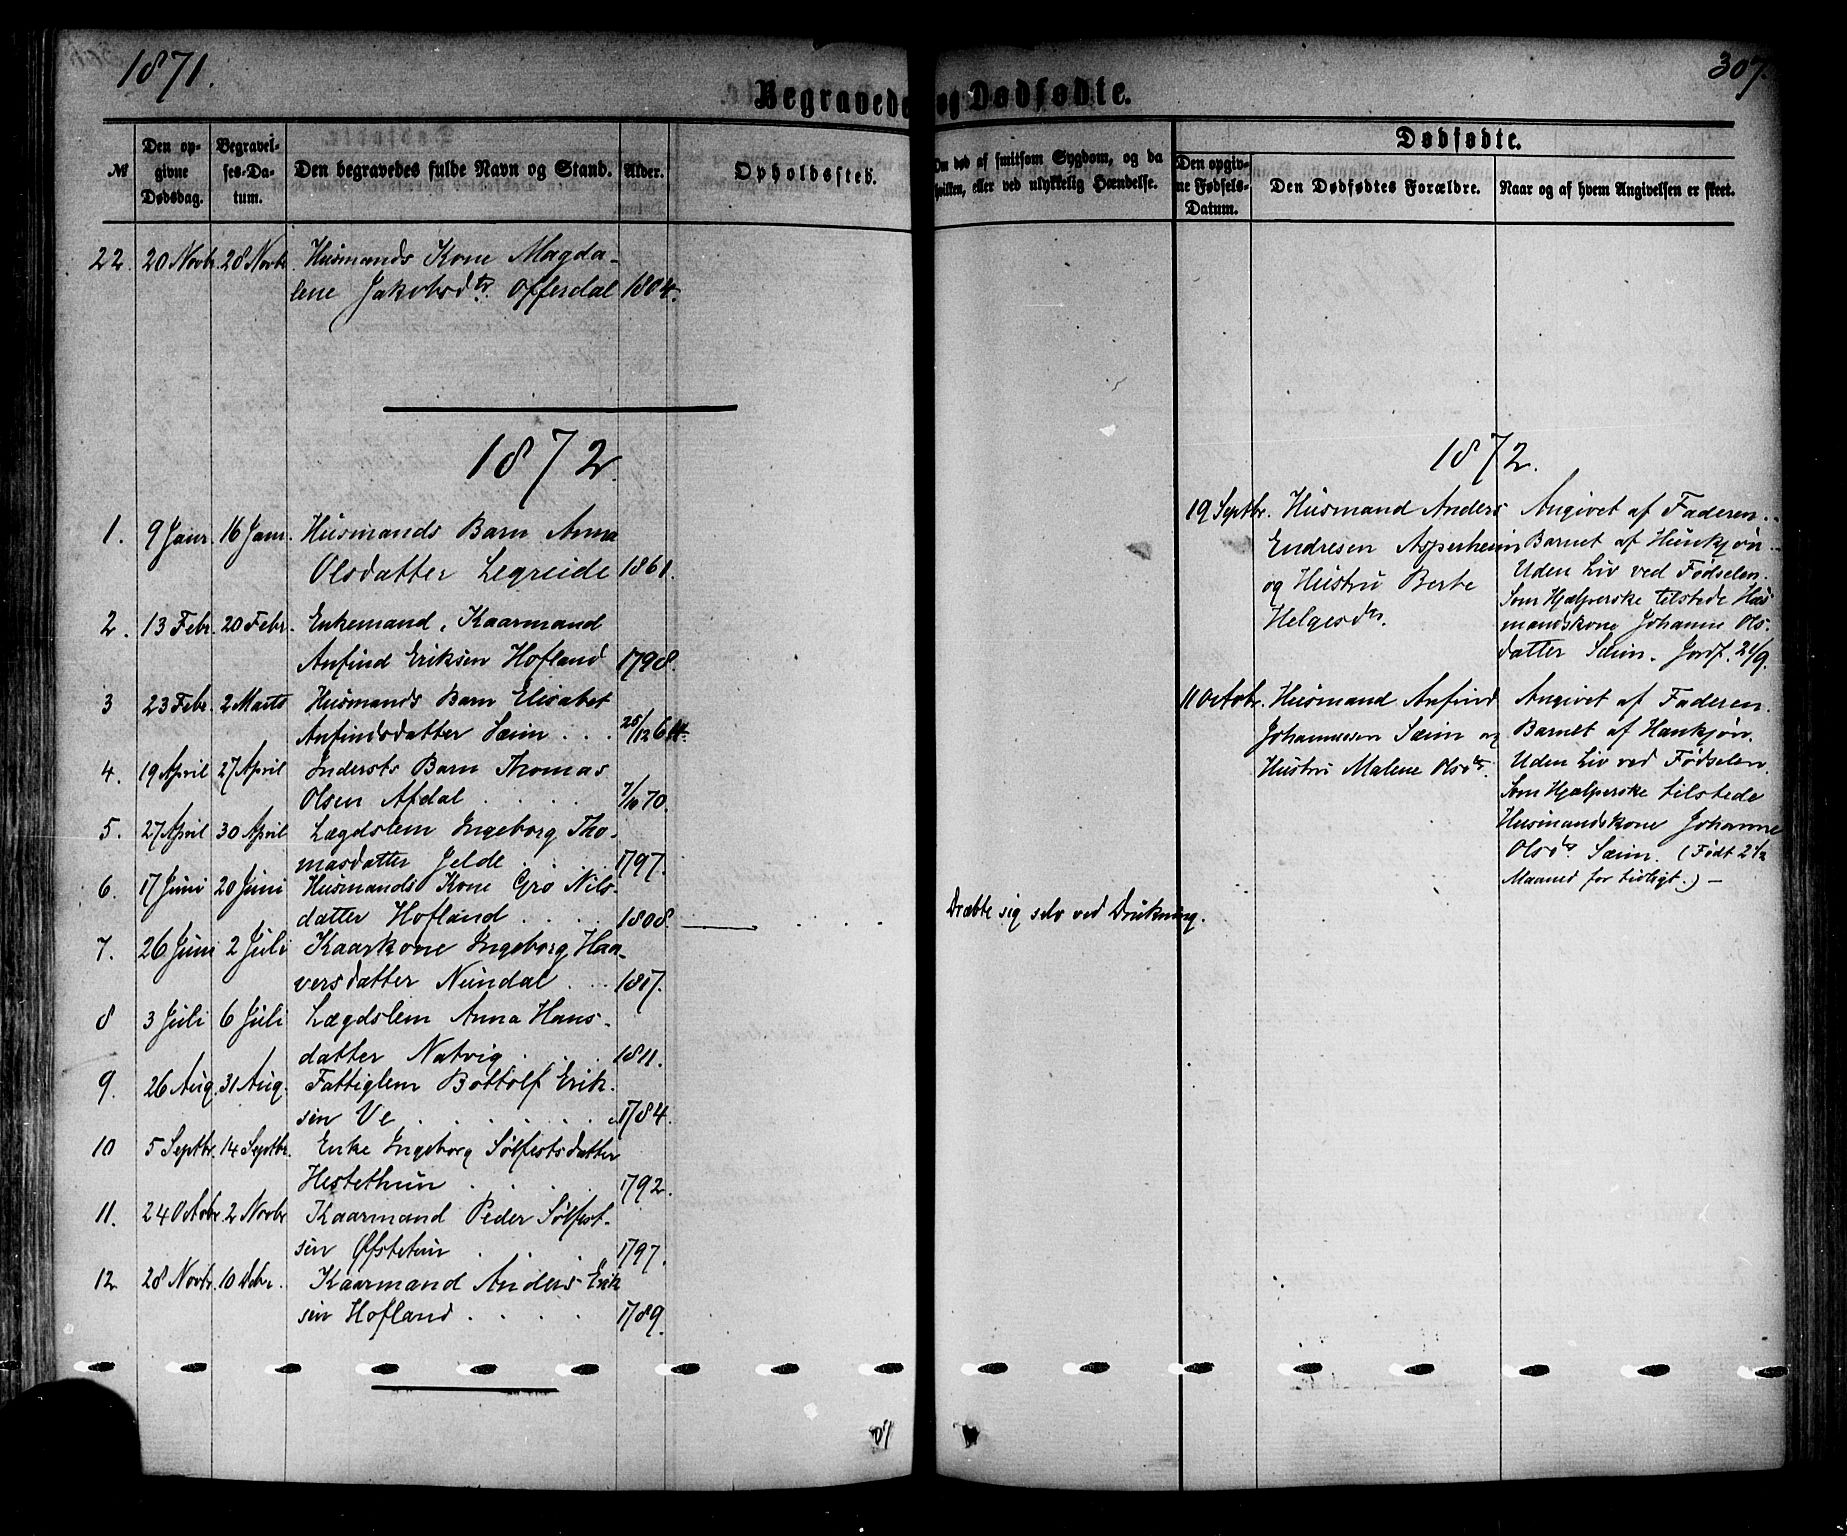 1871.
307.
Begravede og Dødfødte.
№
Den opgivne Dødsdag.
Begravelses-Datum.
Den begravedes fulde Navn og Stand.
Alder.
Opholdssted.
Om død af smitsom Sygdom, og da
hvilken, eller ved ulykkelig Hændelse.
Dødfødte.
Den opgivne Fødsels-Datum.
Den Dødfødtes Forældre.
Naar og af hvem Angivelsen er skeet.
22. 20 Novbr. 28 Novbr. Husmands Kone Magda-
lene Jakobsdtr. Offerdal 1804.
1872.
1. 9 Janr. 16 Janr. Husmands Barn Anna
Olsdatter Legreide 1861.
2. 13 Febr. 20 Febr. Enkemand, Kaarmand
Anfind Eriksen Hofland 1798.
3 23 Febr. 2 Marts Husmands Barn Elisabet
Anfindsdatter Sæim . . .
4. 19 April 27 April Indersts Barn Thomas
Olsen Afdal . . . . 7/10 70.
5. 27 April 30 April Lægdslem Ingeborg Tho-
masdatter Jelde . . . 1797.
6. 17 Juni 20 Juni Husmands Kone Gro Nils-
datter Hofland . . . . 1808. Dræbte sig selv ved Drukning.
7. 26 Juni 2 Juli Kaarkone Ingeborg Haa-
versdatter Nundal . . . 1817.
8 3 Juli 6 Juli Lægdslem Anna Hans-
datter Natvig . . . 1811.
9. 26 Aug. 31 Aug. Fattiglem Bottolf Erik-
sen Ve . . . . . . 1784.
10 5 Septbr. 14 Septbr. Enke Ingeborg Sølfestsdatter
Hestethun . . . . 1792.
11. 24 Octobr. 2 Novbr Kaarmand Peder Sølfest-
sen Øfstetun . . . 1797.
12 28 Novbr. 10 Debr. Kaarmand Anders Erik
sen Hofland . . . . 1789.
1872.
19 Septbr. Husmand Anders
Endresen Asperheim
og Hustru Berte
Helgesdtr.
Angivet af Faderen.
Barnet af Hunkjøn.
Uden Liv ved Fødselen.
Som Hjælperske tilstede Hus
mandskone Johanne Ols-
datter Sæim. Jordf. 21/9.
11 Octobr. Husmand Anfind
Johannesen Sæim og
Hustru Malene Olsdtr.
Angivet af Faderen.
Barnet af Hankjøn.
Uden Liv ved Fødselen.
Som Hjælperske tilstede
Husmandskone Johanne
Olsdtr. Sæim. (Født 2 1/2
Maaned for tidligt.) —